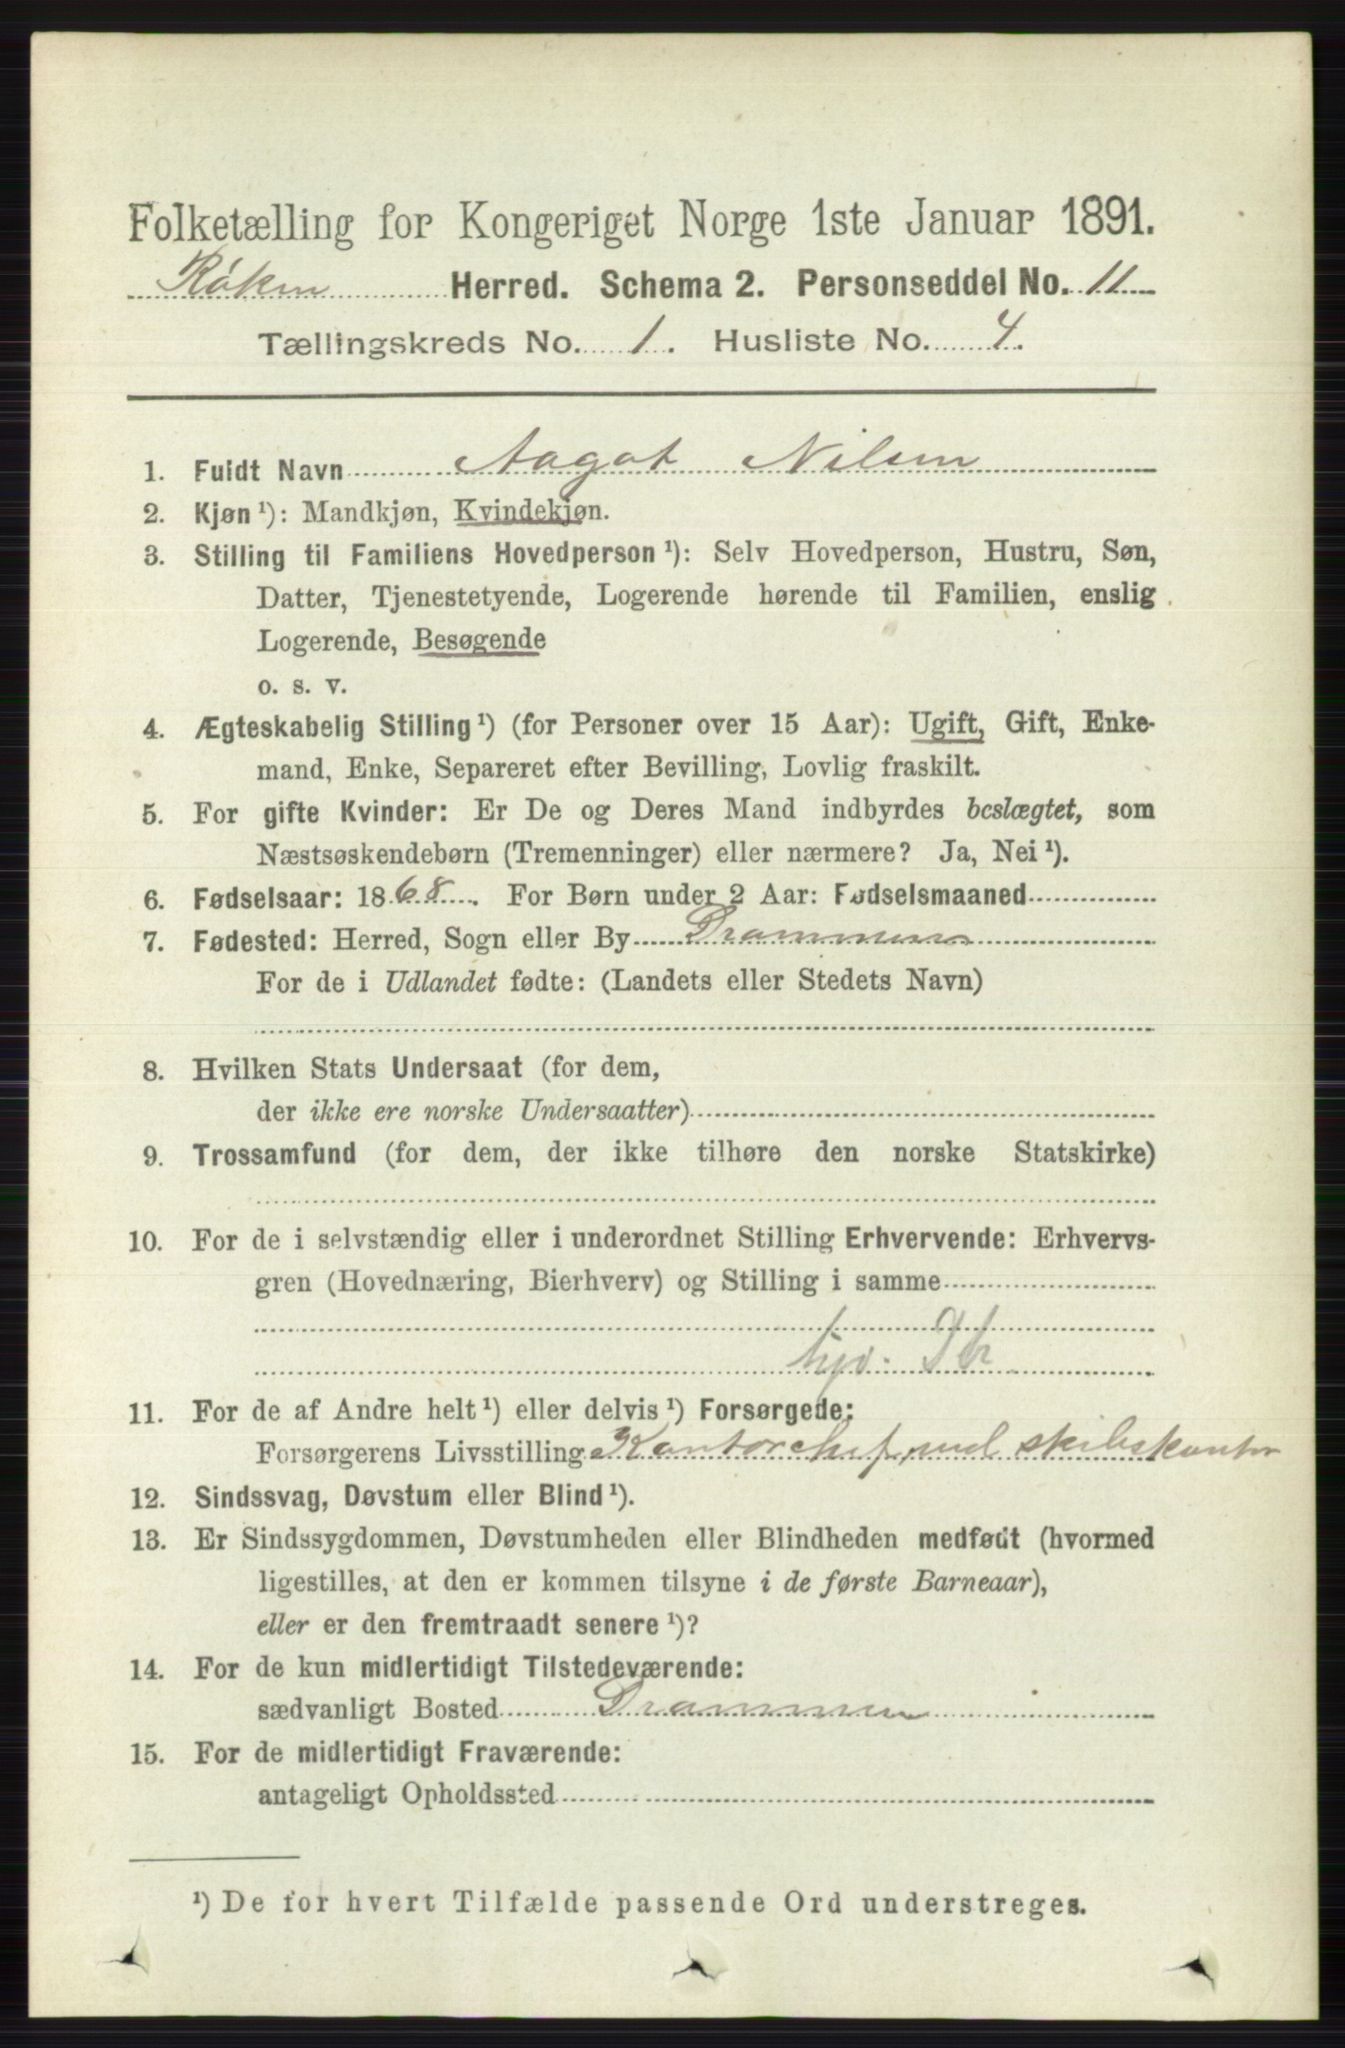 Folketælling for Kongeriget Norge 1ste Januar 1891.
Røken Herred. Schema 2. Personseddel No. 11
Tællingskreds No. 1. Husliste No. 4.
1. Fuldt Navn Aagot Nilsen
2. Kjøn ¹): Mandkjøn, Kvindekjøn.
3. Stilling til Familiens Hovedperson ¹): Selv Hovedperson, Hustru, Søn,
Datter, Tjenestetyende, Logerende hørende til Familien, enslig
Logerende, Besøgende
o. s. v.
4. Ægteskabelig Stilling ¹) (for Personer over 15 Aar): Ugift, Gift, Enke-
mand, Enke, Separeret efter Bevilling, Lovlig fraskilt.
5. For gifte Kvinder: Er De og Deres Mand indbyrdes beslægtet, som
Næstsøskendebørn (Tremenninger) eller nærmere? Ja, Nei ¹).
6. Fødselsaar: 1868. For Børn under 2 Aar: Fødselsmaaned
7. Fødested: Herred, Sogn eller By Drammen
For de i Udlandet fødte: (Landets eller Stedets Navn)
8. Hvilken Stats Undersaat (for dem,
der ikke ere norske Undersaatter)
9. Trossamfund (for dem, der ikke tilhøre den norske Statskirke)
10. For de i selvstændig eller i underordnet Stilling Erhvervende: Erhvervs-
gren (Hovednæring, Bierhverv) og Stilling i samme
11. For de af Andre helt ¹) eller delvis ¹) Forsørgede:
Forsørgerens Livsstilling Kontorchef, ved skibskontor
12. Sindssvag, Døvstum eller Blind ¹).
13. Er Sindssygdommen, Døvstumheden eller Blindheden medfødt (hvormed
ligestilles, at den er kommen tilsyne i de første Barneaar),
eller er den fremtraadt senere ¹)?
14. For de kun midlertidigt Tilstedeværende:
sædvanligt Bosted Drammen
15. For de midlertidigt Fraværende:
antageligt Opholdssted
¹) De for hvert Tilfælde passende Ord understreges.